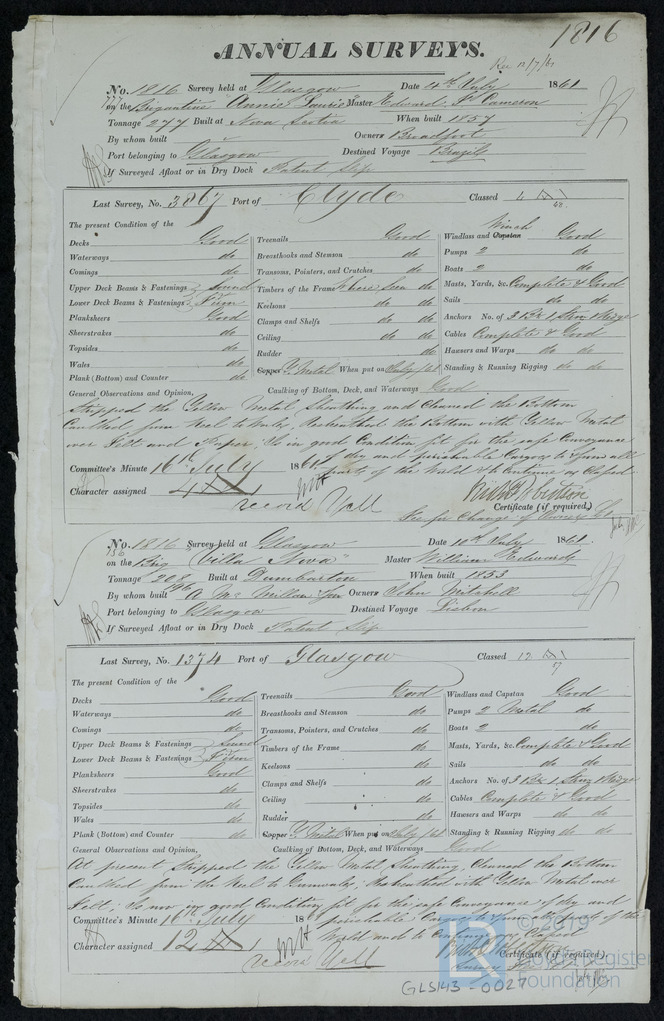 1816
ANNUAL SURVEYS.
Rec 12/7/61
No. 1816 Survey held at Glasgow Date 4th July 1861
on the Brigantine "Annie Laurie" Master Edward Cameron
Tonnage 277 Built at Nova Scotia When built 1857
By whom built Owners Broadfoot
Port belonging to Glasgow Destined Voyage Brazil
If Surveyed Afloat or in Dry Dock Patent Slip
Last Survey, No. 3867 Port of Clyde Classed 4 A1
The present Condition of the
Decks Good
Waterways do
Comings do
Upper Deck Beams & Fastenings Sound
Lower Deck Beams & Fastenings Firm
Planksheers Good
Sheerstrakes do
Topsides do
Wales do
Plank (Bottom) and Counter do
Treenails Good
Breasthooks and Stemson do do
Transoms, Pointers, and Crutches do
Timbers of the Frame where seen do
Keelsons do do
Clamps and Shelfs do do
Ceiling do do
Rudder do
Copper Y. Metal When put on July /61
Winch
Windlass and Capstan Good
Pumps 2 do
Boats 2 do
Masts, Yards, &c. Complete & Good
Sails do do
Anchors No. of 3 Bs 1 Strm 1 Kedge
Cables Complete & Good
Hawsers and Warps do do
Standing & Running Rigging do do
General Observations and Opinion, Caulking of Bottom, Deck, and Waterways Good
Stripped the Yellow Metal Sheathing and Cleaned the Bottom
Caulked from Keel to Wales, Resheathed the Bottom with Yellow Metal
over Felt and Paper, Is in good Condition fit for the safe Conveyance
of dry and perishable Cargoes to & from all
parts of the World & to Continue as Classed
Committee's Minute 16th July 1861
Character assigned 4 A1
record Y All
Certificate (if required,)
See for Change of Owners &c
No. 1816 Survey held at Glasgow Date 10th July 1861
on the Brig "Villa Nova" Master William Edwards
Tonnage 208 Built at Dumbarton When built 1853
By whom built A McMillan & Son Owners John Mitchell
Port belonging to Glasgow Destined Voyage Lisbon
If Surveyed Afloat or in Dry Dock Patent Slip
Last Survey, No. 1374 Port of Glasgow Classed 12 A1
57
The present Condition of the
Decks Good
Waterways do
Comings do
Upper Deck Beams & Fastenings Sound
Lower Deck Beams & Fastenings Firm
Planksheers Good
Sheerstrakes do
Topsides do
Wales do
Plank (Bottom) and Counter do
Treenails Good
Breasthooks and Stemson do
Transoms, Pointers, and Crutches do
Timbers of the Frame do
Keelsons do
Clamps and Shelfs do
Ceiling do
Rudder do
Copper Y. Metal When put on July /61
Windlass and Capstan Good
Pumps 2 Metal do
Boats 2 do
Masts, Yards, &c. Complete & Good
Sails do do
Anchors No. of 3 Bs 1 Strm 1 Kedge
Cables Complete & Good
Hawsers and Warps do do
Standing & Running Rigging do do
General Observations and Opinion, Caulking of Bottom, Deck, and Waterways Good
At present Stripped the Yellow Metal Sheathing, Cleaned the Bottom
Caulked from the Keel to Gunwales, Resheathed with Yellow Metal over
Felt; Is now in good Condition fit for the safe Conveyance of dry and
perishable Cargoes to & from all parts of the
World and to Continue as Classed
Committee's Minute 16th July 18
Character assigned 12 A1
record Y All
Certificate (if required).
© 2019
Lloyd's Register
Foundation
GLS143-0027